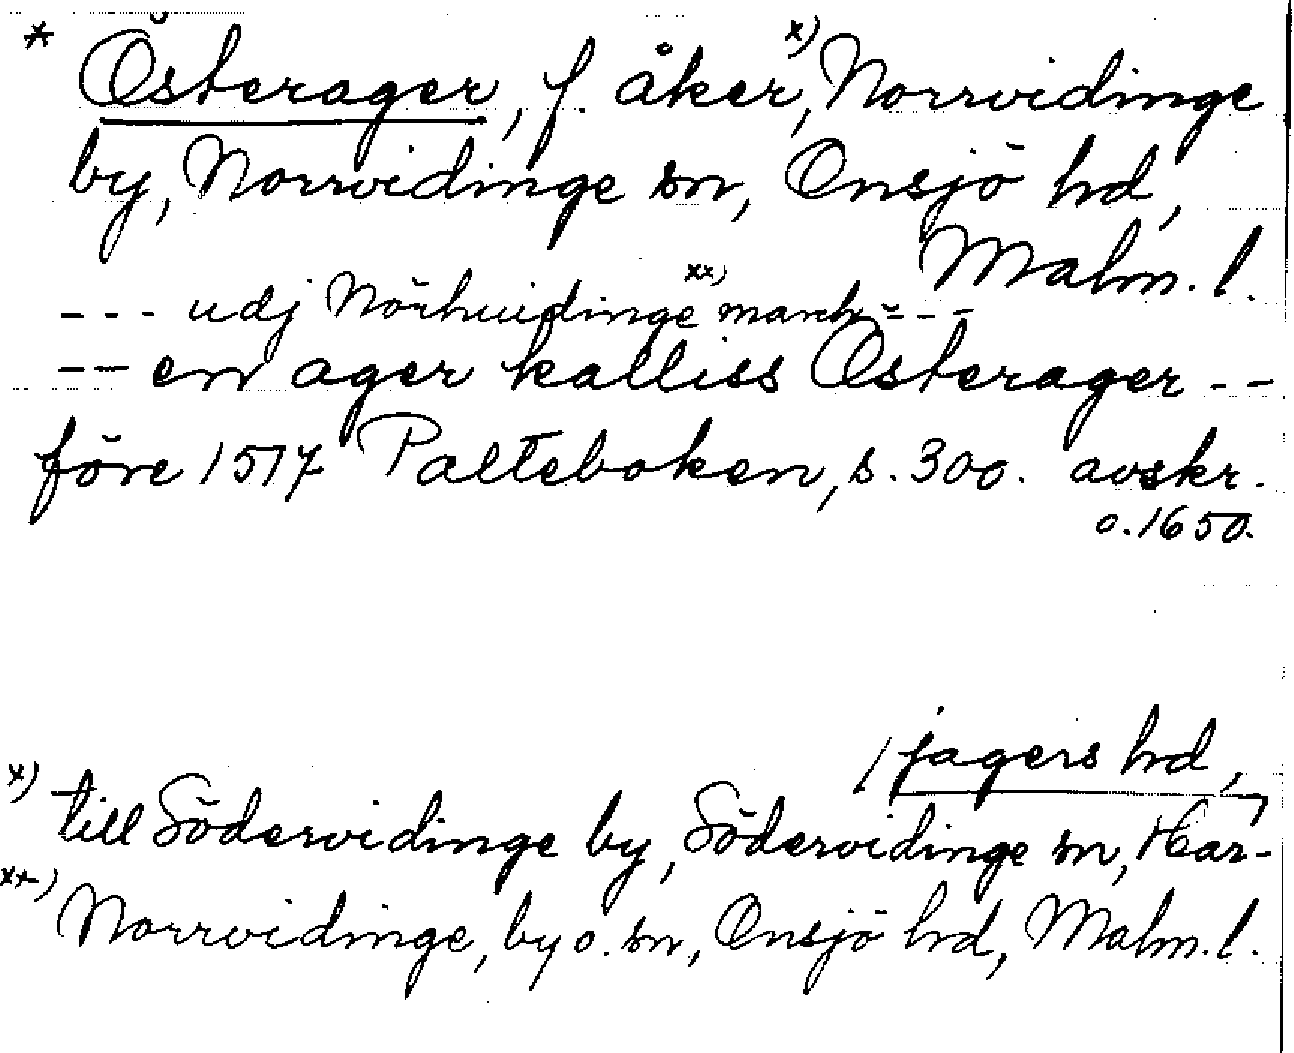 * Österager, f. åker,x) Norrvidinge
by, Norrvidinge sn, Onsjö hd,
Malm. l.
--- udj Nörhuidingexx) march ---
-- en ager kalliss Østerager --
före 1517 Palteboken, s. 300. avskr.
o. 1650.
/jagers hd,
x) till Södervidinge by, Södervidinge sn, Har-
xx) Norrvidinge, by o. sn, Onsjö hd, Malm. l.